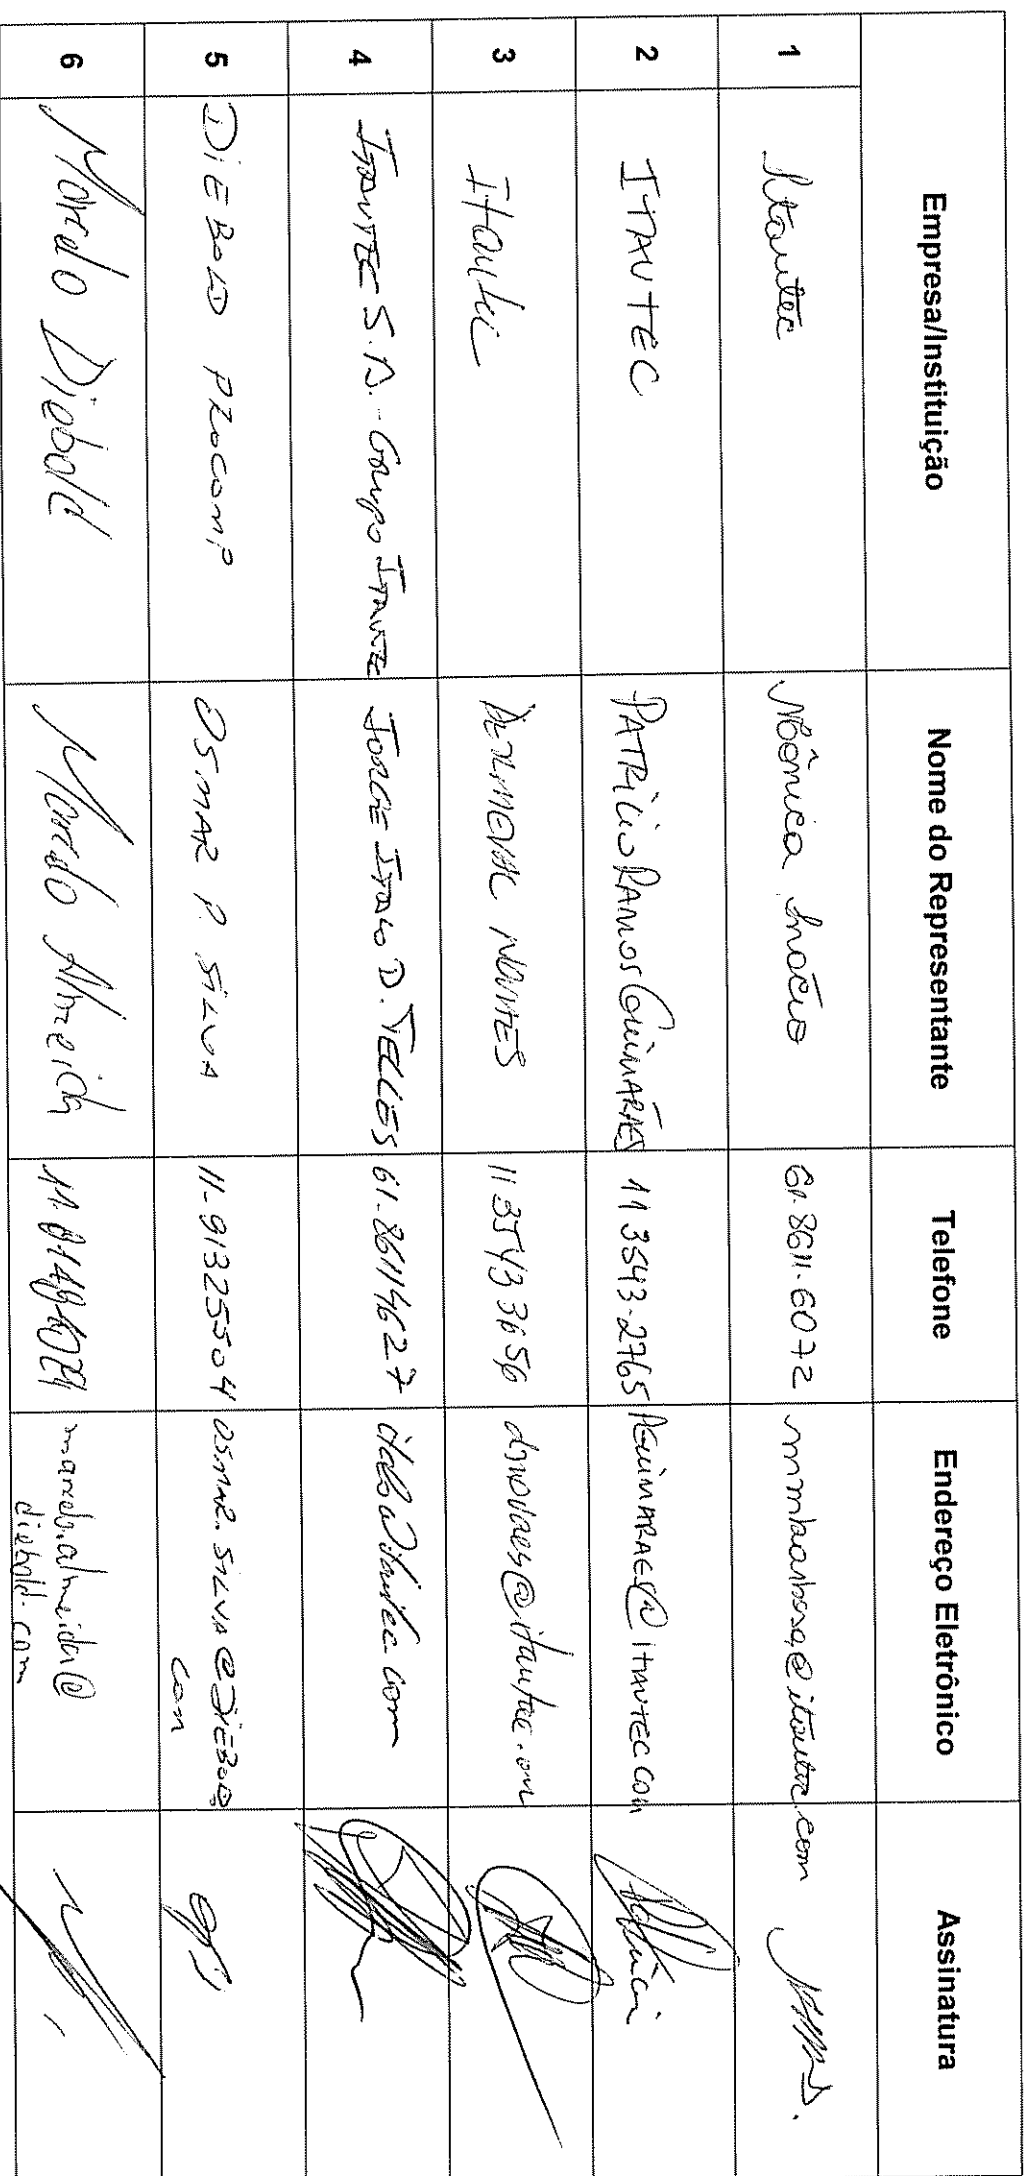 Empresa/Instituição Nome do Representante Telefone Endereço Eletrônico Assinatura
1 Itautec Mônica Inácio 61-8611-6072 mmbarbosa@itautec.com
2 ITAUTEC PATRÍCIO RAMOS GUIMARÃES 11 3543-2765 PGUIMARAES@ITAUTEC.COM
3 Itautec NOVAES 11 3543 3656 dnovaes@itautec.com
4 ITAUTEC S.A. - GRUPO ITAUTEC JORGE ITALO D. TELLES 61-86114627 italo@itautec.com
5 DIEBOLD PROCOMP OSMAR P. SILVA 11-91325504 OSMAR.SILVA@DIEBOLD
com
6 Marcelo Diebold Marcelo Almeida marcelo.almeida@
diebold.com